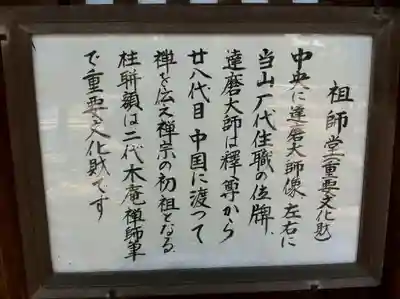 祖師堂(重要文化財)
中央に達磨大師像左右に
当山歴代住職の位牌、
達磨大師は釋尊から
廿八代目中国に渡って
禅を伝え禅宗の初祖となる
柱聯額は二代木庵禅師筆
で重要文化財です